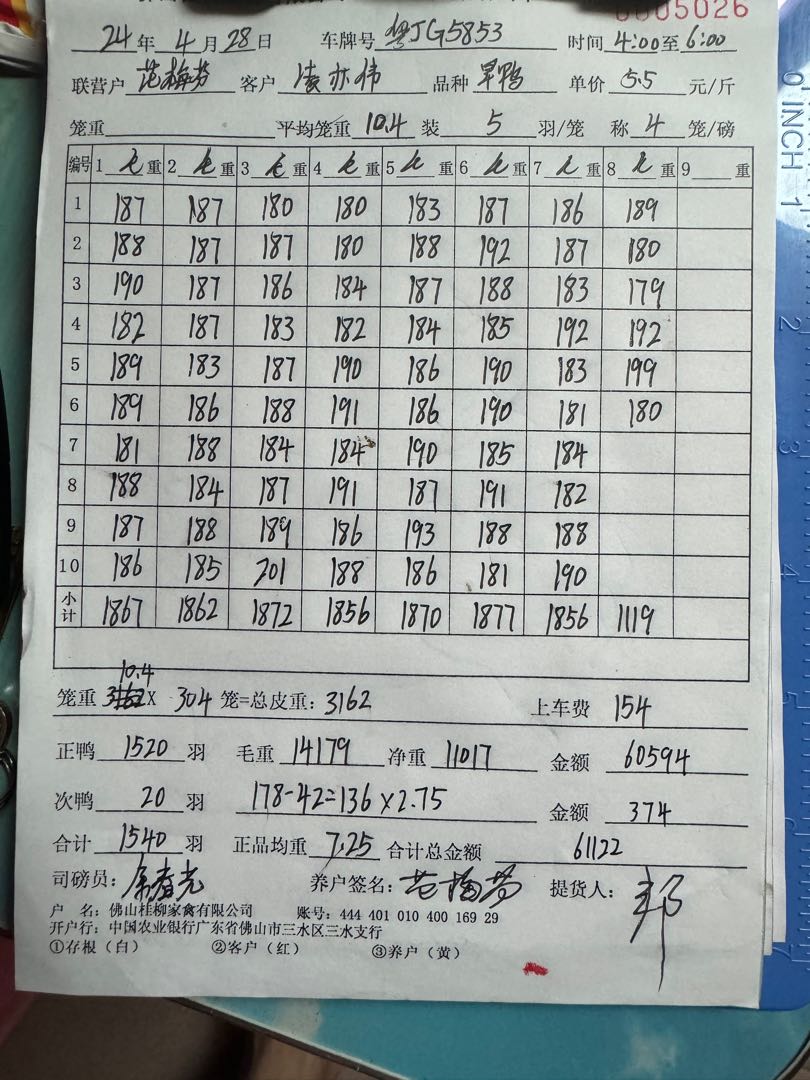 0005026
24年 4月 28日 车牌号 粤JG5853 时间 4:00至 6:00
联营户 范梅芬 客户 凌亦伟 品种 旱鸭 单价 5.5 元/斤
笼重 平均笼重 10.4 装 5 羽/笼 称 4 笼/磅
编号 1 毛 重 2 毛 重 3 毛 重 4 毛 重 5 毛 重 6 毛 重 7 毛 重 8 毛 重 9 重
1 187 187 180 180 183 187 186 189
2 188 187 187 180 188 192 187 180
3 190 187 186 184 187 188 183 179
4 182 187 183 182 184 185 192 192
5 189 183 187 190 186 190 183 199
6 189 186 188 191 186 190 181 180
7 181 188 184 184 190 185 184
8 188 184 187 191 187 191 182
9 187 188 189 186 193 188 188
10 186 185 201 188 186 181 190
小计 1867 1862 1872 1856 1870 1877 1856 1119
10.4
笼重 3162 X 304 笼=总皮重: 3162 上车费 154
正鸭 1520 羽 毛重 14179 净重 11017 金额 60594
次鸭 20 羽 178-42=136×2.75 金额 374
合计 1540 羽 正品均重 7.25 合计总金额 61122
司磅员: 余春光 养户签名: 范梅芬 提货人: 邦
户 名: 佛山桂柳家禽有限公司 账号: 444 401 010 400 169 29
开户行: 中国农业银行广东省佛山市三水区三水支行
①存根(白) ②客户(红) ③养户(黄)
0 INCH 1
2
3
4
5